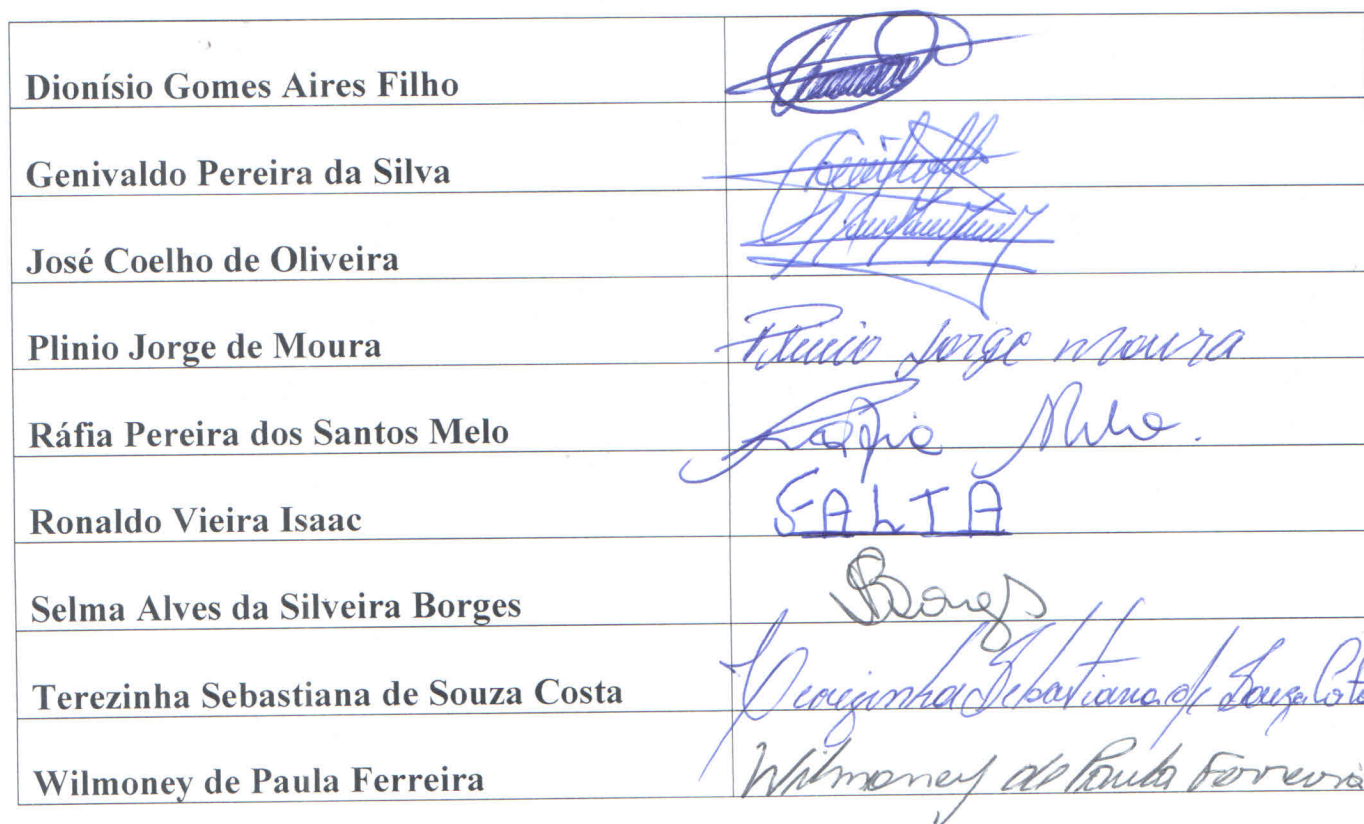 Dionísio Gomes Aires Filho
Genivaldo Pereira da Silva
José Coelho de Oliveira
Plinio Jorge de Moura Plinio Jorge Moura
Ráfia Pereira dos Santos Melo Ráfia Melo.
Ronaldo Vieira Isaac FALTA
Selma Alves da Silveira Borges SBorges
Terezinha Sebastiana de Souza Costa Terezinha Sebastiana de Souza Costa
Wilmoney de Paula Ferreira Wilmoney de Paula Ferreira